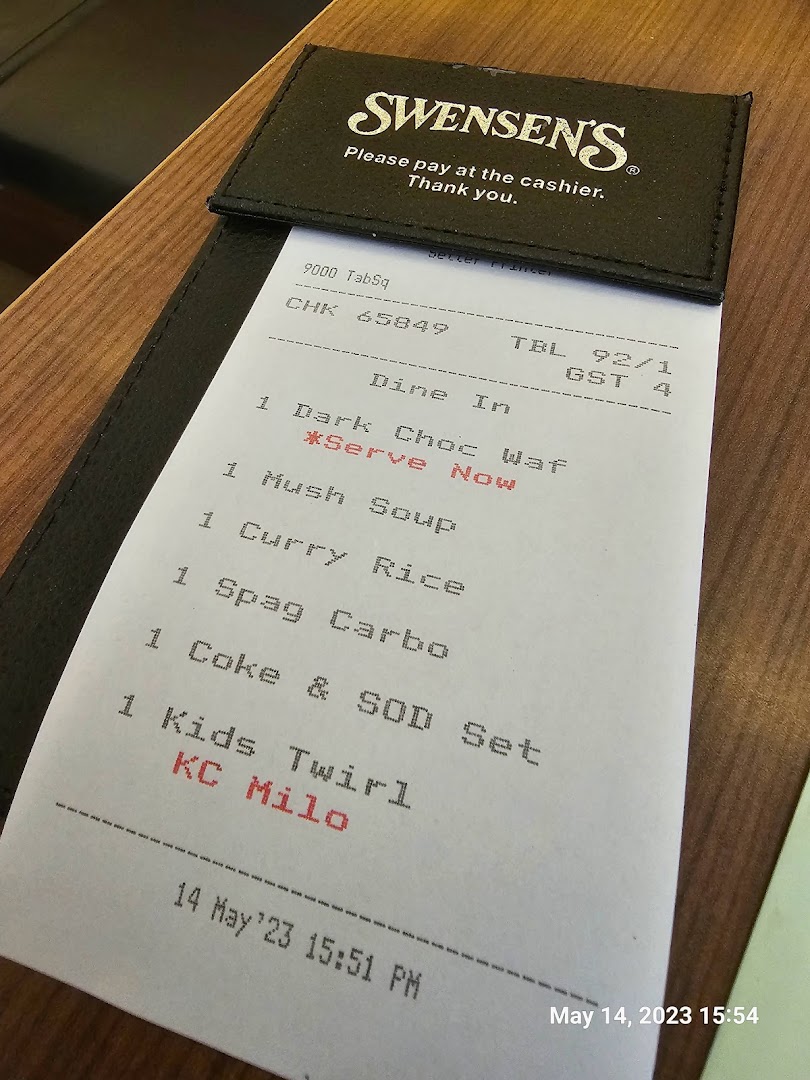 SWENSEN'S®
Please pay at the cashier.
Thank you.
Setter Printer
9000 TabSq
CHK 65849 TBL 92/1
GST 4
Dine In
1 Dark Choc Waf
*Serve Now
1 Mush Soup
1 Curry Rice
1 Spag Carbo
1 Coke & SOD Set
1 Kids Twirl
KC Milo
14 May'23 15:51 PM
May 14, 2023 15:54